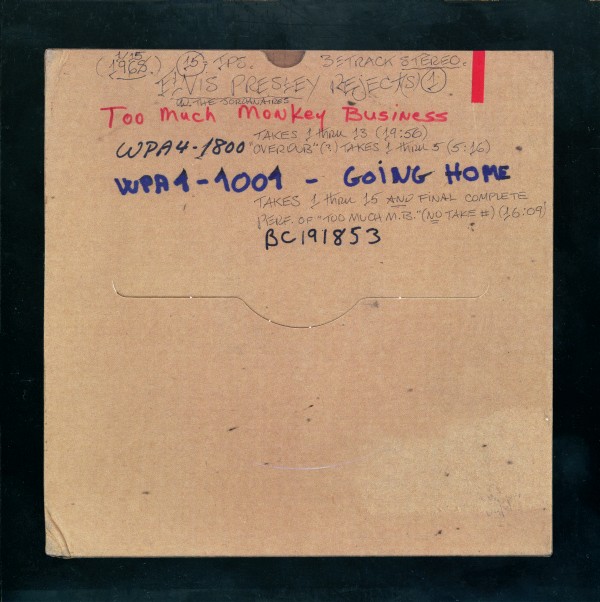 1/15
(1968) (15) IPS. 3 TRACK STEREO.
ELVIS PRESLEY REJECTS (1)
W. THE JORDANAIRES
Too Much Monkey Business
TAKES 1 thru 13 (19:56)
WPA4-1800 "OVERDUB" (?) TAKES 1 thru 5 (5:16)
WPA1-1001 - GOiNG HOME
TAKES 1 thru 15 AND FINAL COMPLETE
PERF. OF "TOO MUCH M.B." (NO TAKE #) (16:09)
BC191853